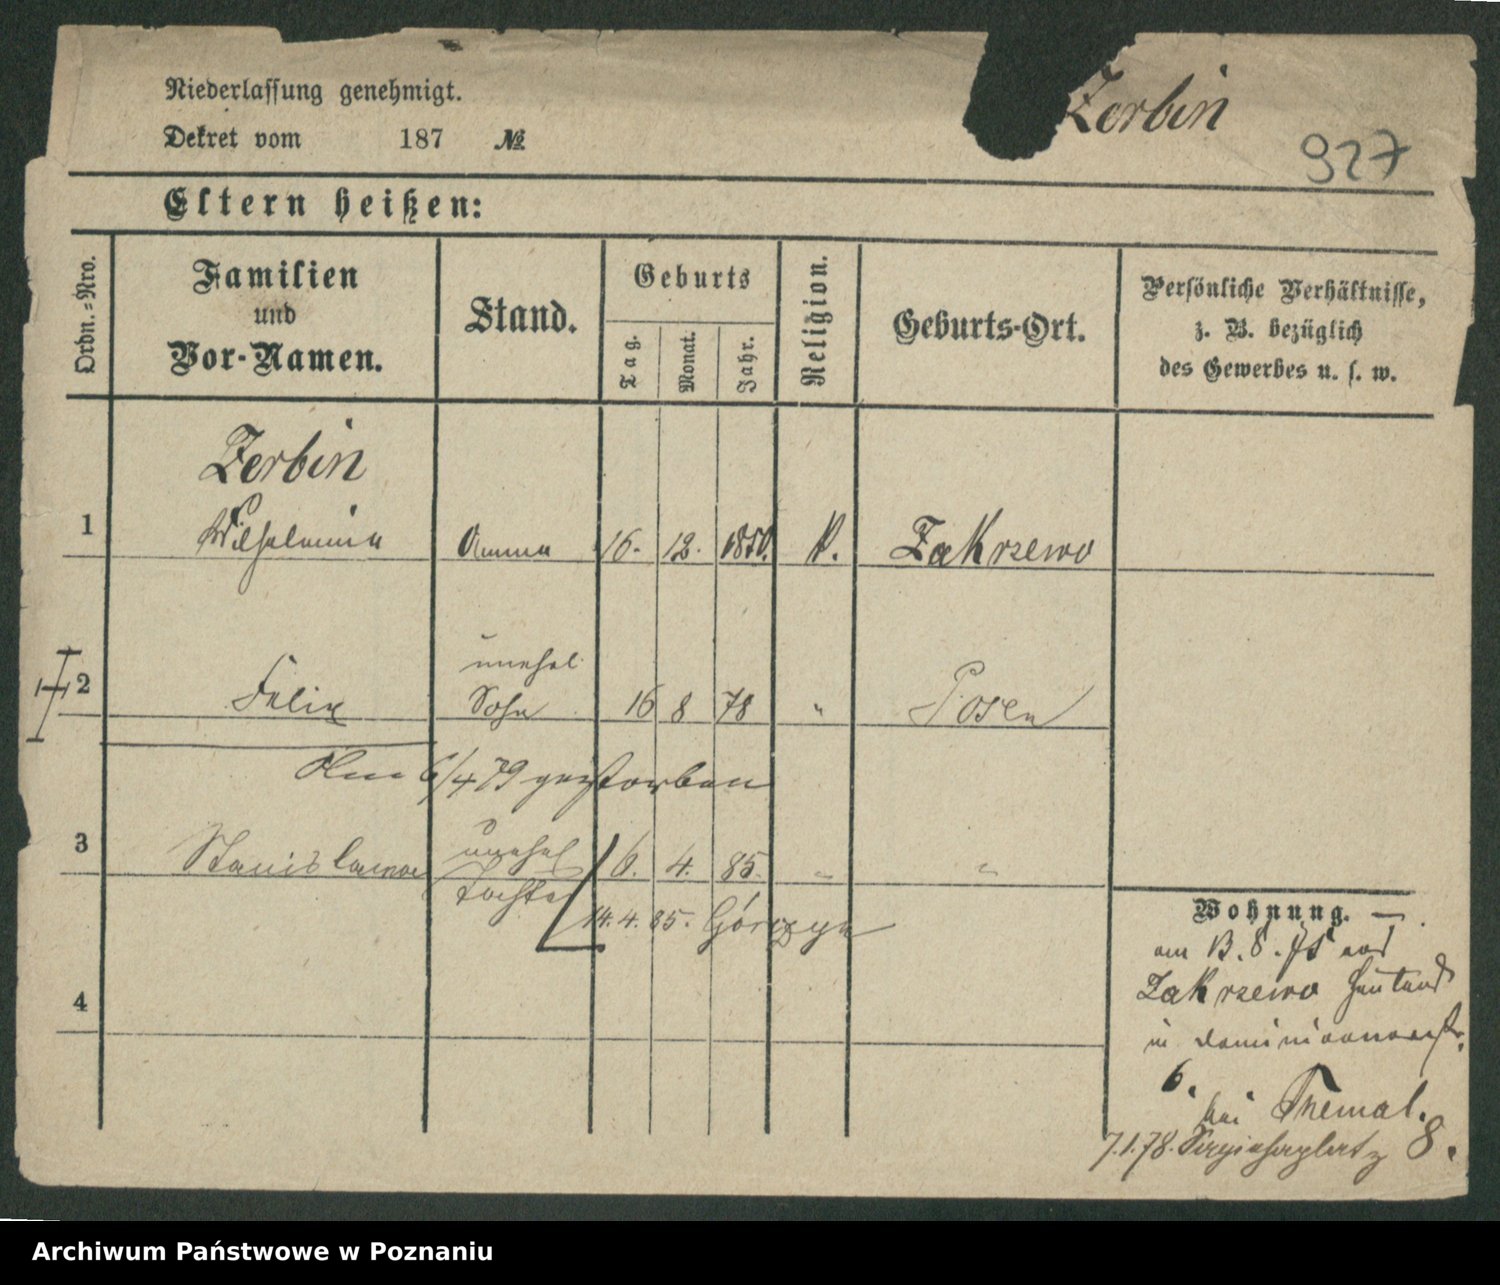 Niederlassung genehmigt.
Dekret vom 187 №
Zerbin
927
Eltern heißen:
Ordn.-Nro.
Familien
und
Vor-Namen.
Stand.
Geburts
Tag.
Monat.
Jahr.
Religion.
Geburts-Ort.
Persönliche Verhältnisse,
z. B. bezüglich
des Gewerbes u. s. w.
Zerbin
1 Wilhelmina Amme 16. 12. 1850. K. Zakrzewo
unehel
2 Felix Sohn 16 8 78 " Posen
Am 6/4 79 gestorben
3 Stanislawa unehel 6. 4. 85. " "
Tochter
14.4.85. Górczyn
4
Wohnung.
am 13.8.75 aus
Zakrzewo
in
6.
bei
7.1.78. 8.
Archiwum Państwowe w Poznaniu